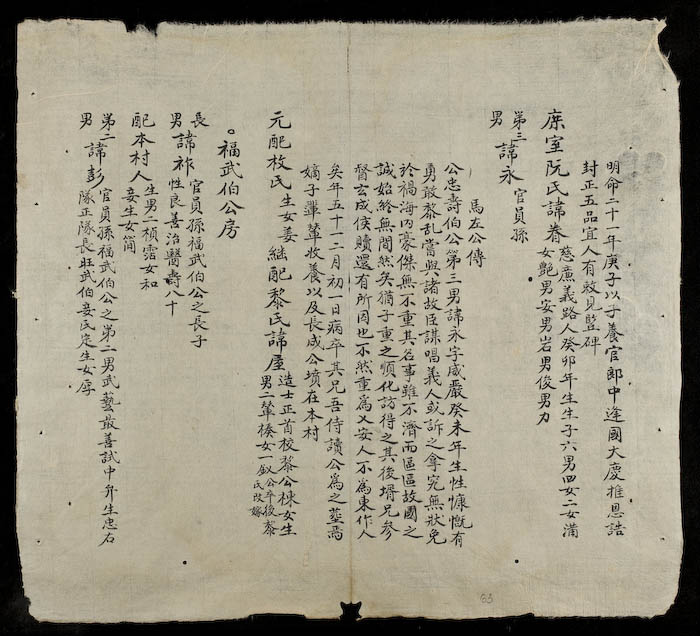 明命二十一年庚子以子養官郎中逢國大慶推恩誥
封正五品宜人有敕見監碑
庶室阮氏諱眷
慈廉義路人癸卯年生生子六男四女二女滿
女艷男安男岩男俊男力
第三諱永官員孫
男
馬左公傳
公忠壽伯公第三男諱永字威嚴癸未年生性慷慨有
勇敢黎乱嘗與諸故臣謀唱義人或訴之拿究無狀免
於禍海内豪傑無不重其名事雖不濟而區區故國之
誠始終無間然矣猶子重之順化訪得之其後壻兄参
督玄成侯贖還有所因也不然重為乂安人不為東作人
矣年五十二月初一日病卒其兄吾侍讀公為之塟焉
嫡子戰輦收養以及長成公墳在本村
元配枚氏生女姜継配黎氏諱屋
造士正首校黎公棟女生
男二輦榛女一釵公卒後黎
氏改嫁
。福武伯公房
長諱祚官員孫福武伯公之長子
男性良善治醫壽八十
配本村人生男二楨霑女和
妾生女简
第二諱彭官員孫福武伯公之第二男武藝最善試中弁生忠右
男隊正隊長旺武伯妾氏定生女厚
63